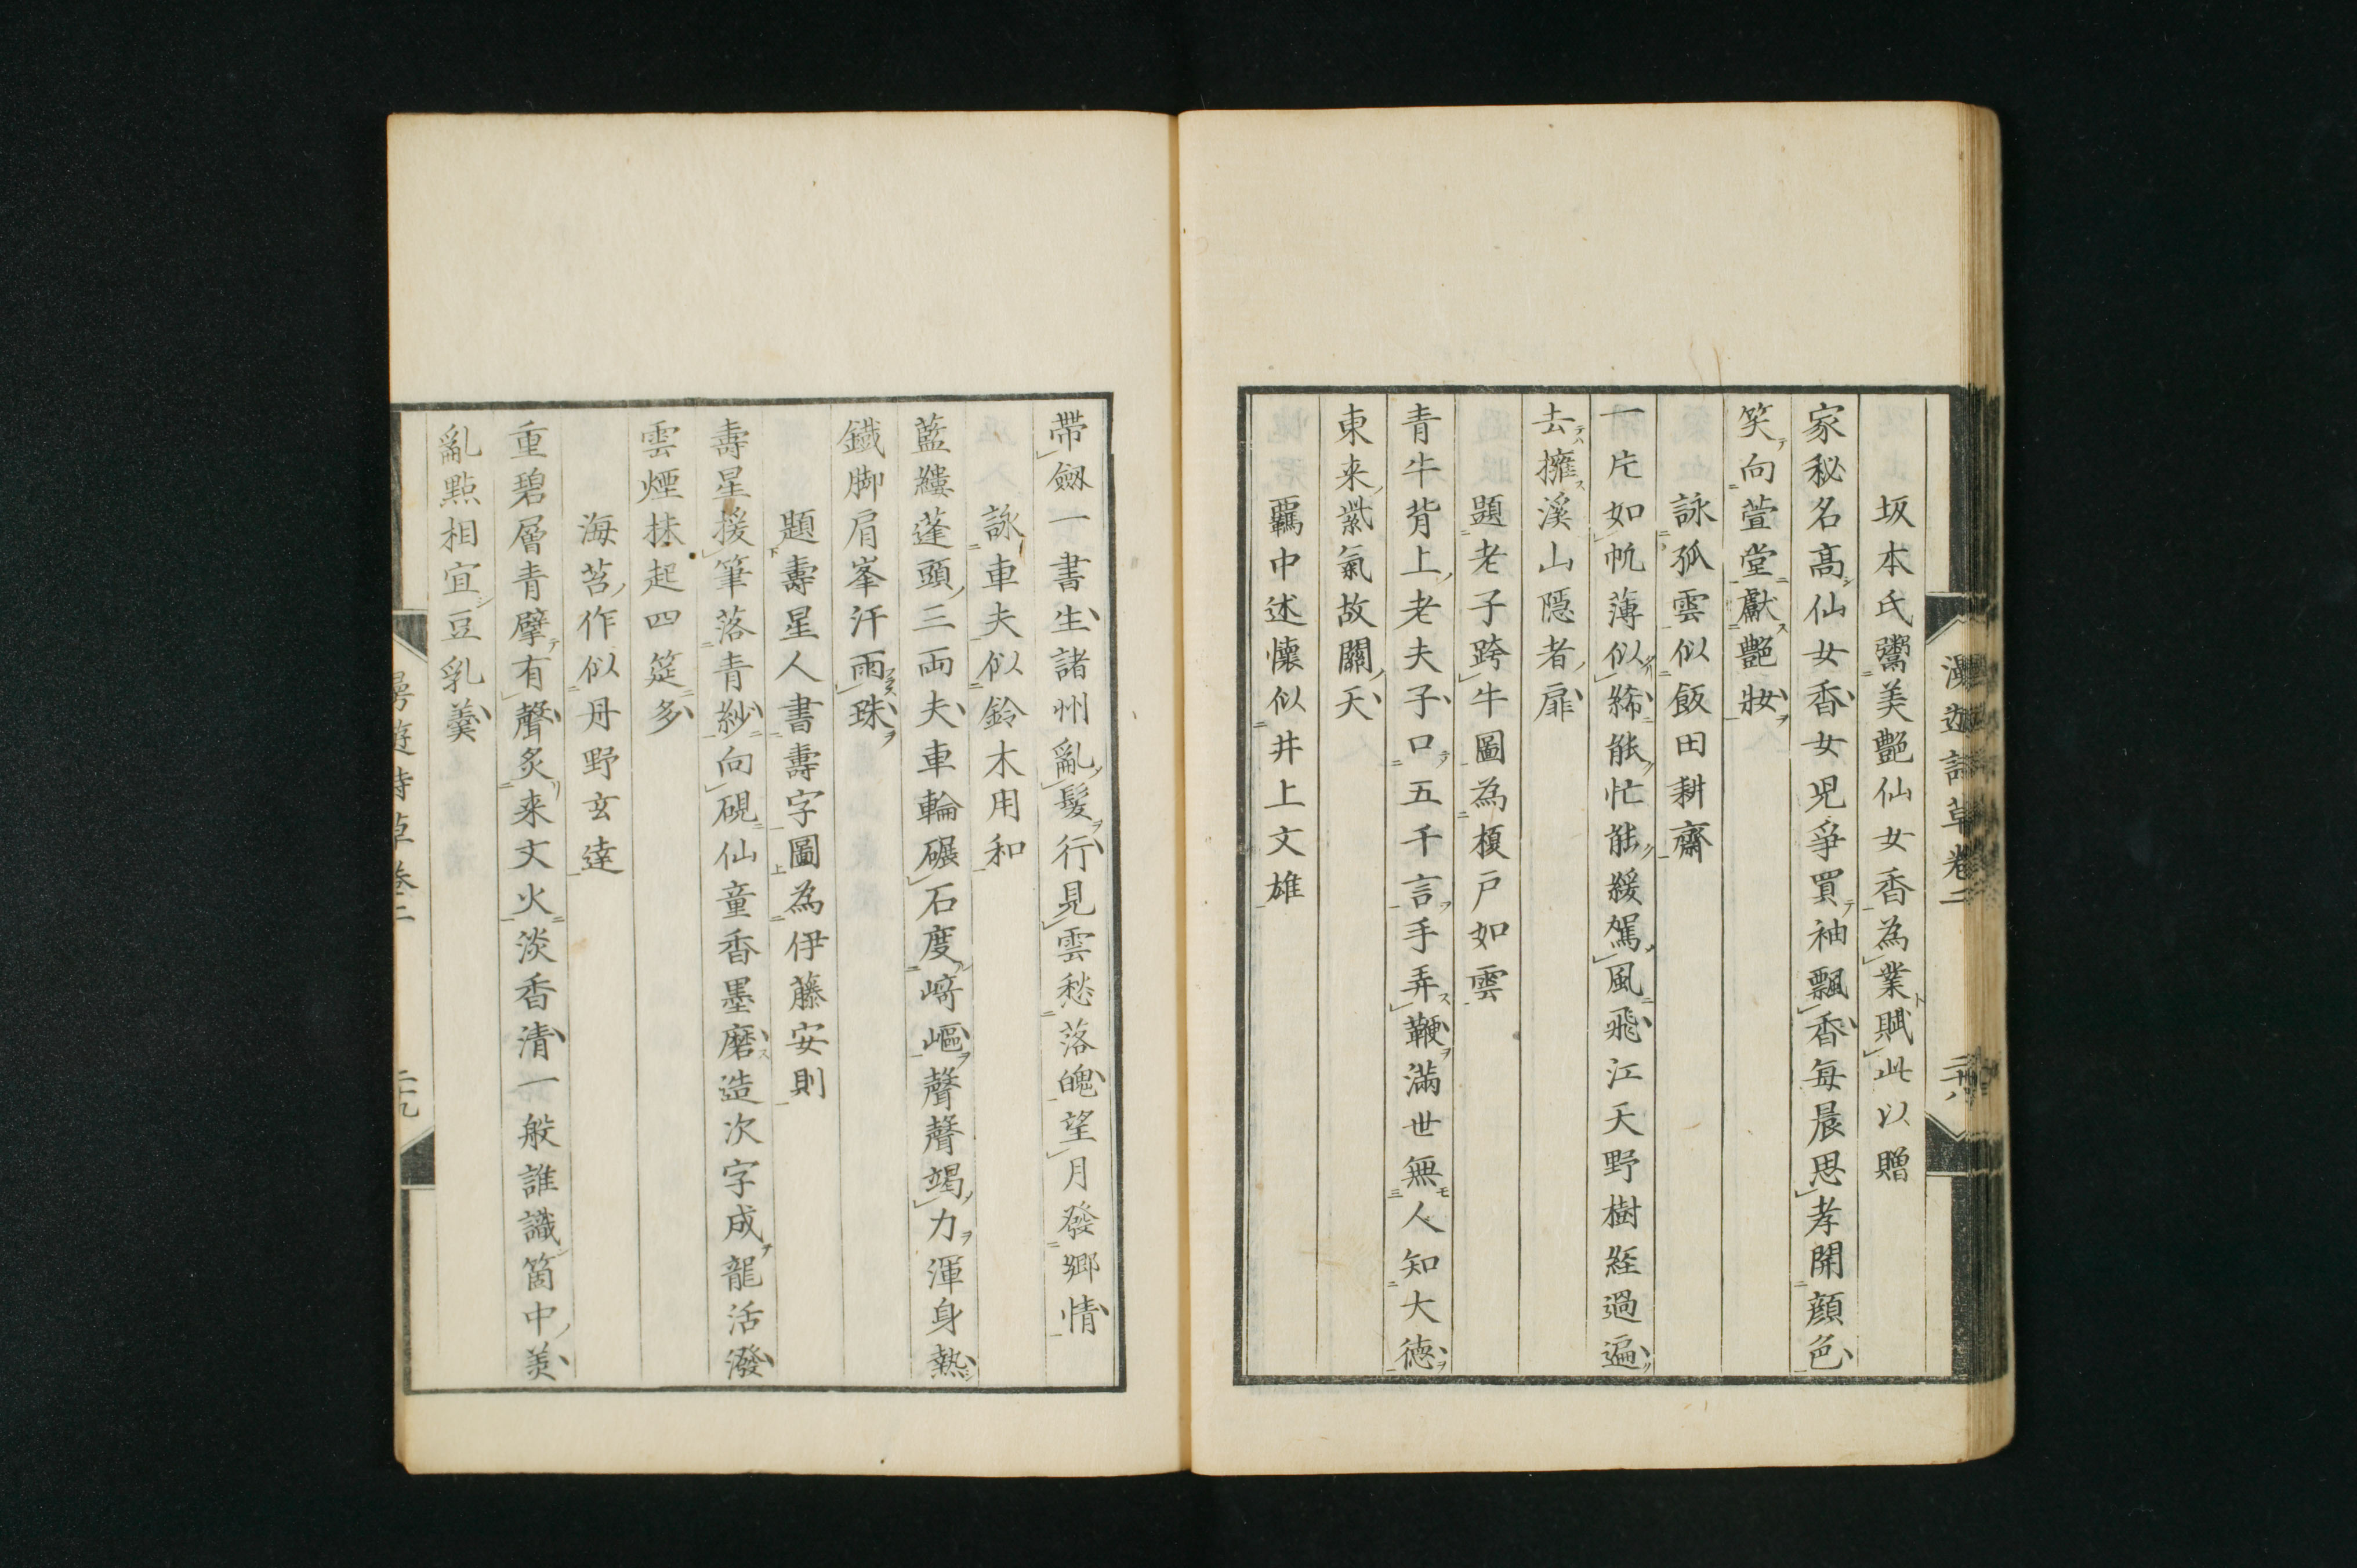 漫遊詩草卷二
二十八
坂本氏鬻美艷仙女香為業賦此以贈
家秘名髙仙女香女児爭買袖飄香每晨思孝開顔色
笑向萱堂獻艷妝
詠孤雲似飯田耕齋
一片如帆薄似絺能忙能緩駕風飛江天野樹經過遍
去擁溪山隠者扉
題老子跨牛圖為榎戸如雲
青牛背上老夫子口五千言手弄鞭滿世無人知大德
東来紫氣故關天
覊中述懷似井上文雄
帶劔一書生諸州亂髮行見雲愁落魄望月發鄉情
詠車夫似鈴木用和
藍縷蓬頭三両夫車輪碾石度﨑嶇聲聲竭力渾身熱
鐵脚肩峯汗雨珠
題壽星人書壽字圖為伊藤安則
壽星援筆落青紗向硯仙童香墨磨造次字成龍活潑
雲煙抹起四筵多
海苔作似丹野玄達
重碧層青擘有聲炙来文火淡香清一般誰識箇中美
亂點相宜豆乳羹
漫遊詩草卷二
二十九